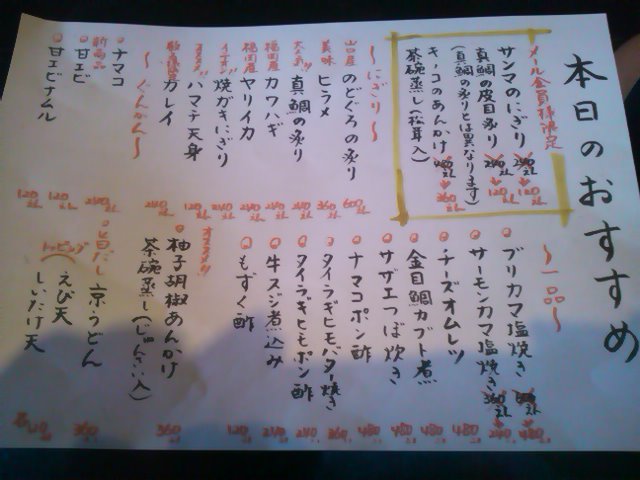 本日のおすすめ
メール会員様限定
サンマのにぎり 240 120
真鯛の皮目炙り 240 120
(真鯛の炙りとは異なります)
キノコのあんかけ
茶碗蒸し(松茸入) 480 360
〜にぎり〜
山口産 のどぐろの炙り 600
美味 ヒラメ 360
大人気!! 真鯛の炙り 240
福岡産 カワハギ 240
福岡産 ヤリイカ 240
イチオシ 焼ガキにぎり 240
オススメ!! ハマチ天身 120
カレイ 240
〜ぐんかん〜
ナマコ 240
新商品 甘エビ 120
甘エビナムル 120
〜一品〜
ブリカマ塩焼き 480
サーモンカマ塩焼き 360 240
チーズオムレツ 480
金目鯛カブト煮 480
サザエつぼ焼き 480
ナマコポン酢 480
タイラギヒモバター焼き 360
タイラギヒモポン酢 240
牛スジ煮込み 240
もずく酢 120
オススメ!!
柚子胡椒あんかけ
茶碗蒸し(じゅんさい入) 360
旨だし 京うどん 360
トッピング えび天
しいたけ天 各120